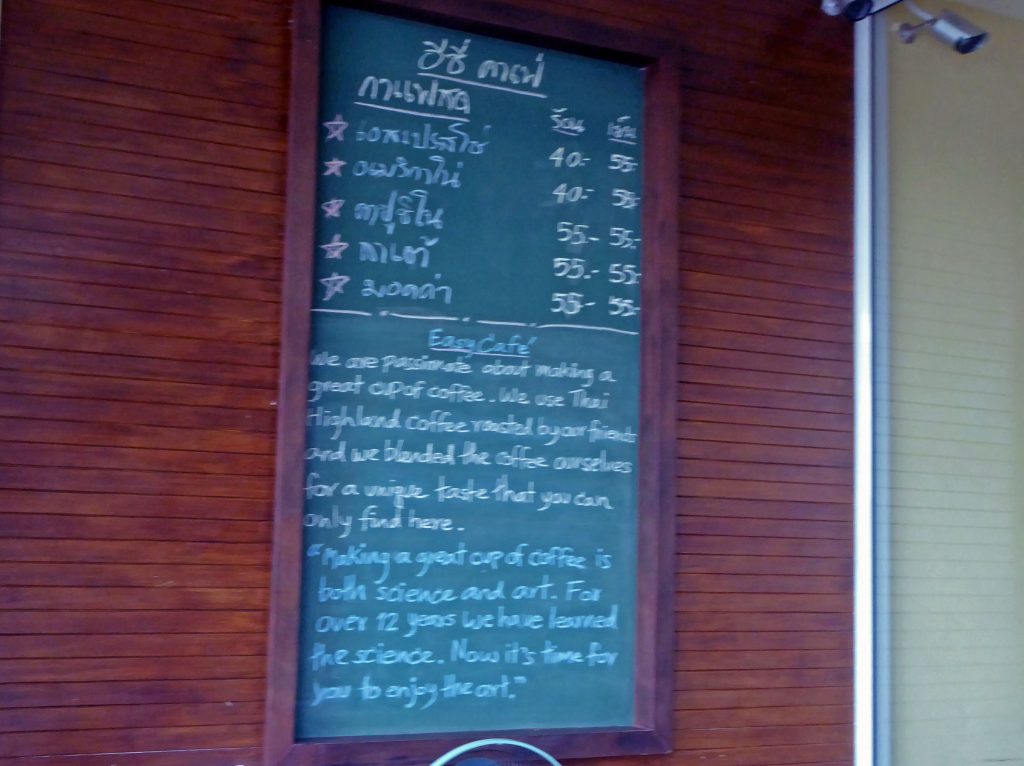 อีซี่ คาเฟ่
กาแฟสด
ร้อน เย็น
เอสเปรสโซ่ 40.- 55.-
อเมริกาโน่ 40.- 55.-
คาปูชิโน 55.- 55.-
ลาเต้ 55.- 55.-
มอคค่า 55.- 55.-
Easy Café
We are passionate about making a
great cup of coffee. We use Thai
Highland coffee roasted by our friends
and we blended the coffee ourselves
for a unique taste that you can
only find here.
"Making a great cup of coffee is
both science and art. For
over 12 years we have learned
the science. Now it's time for
you to enjoy the art."